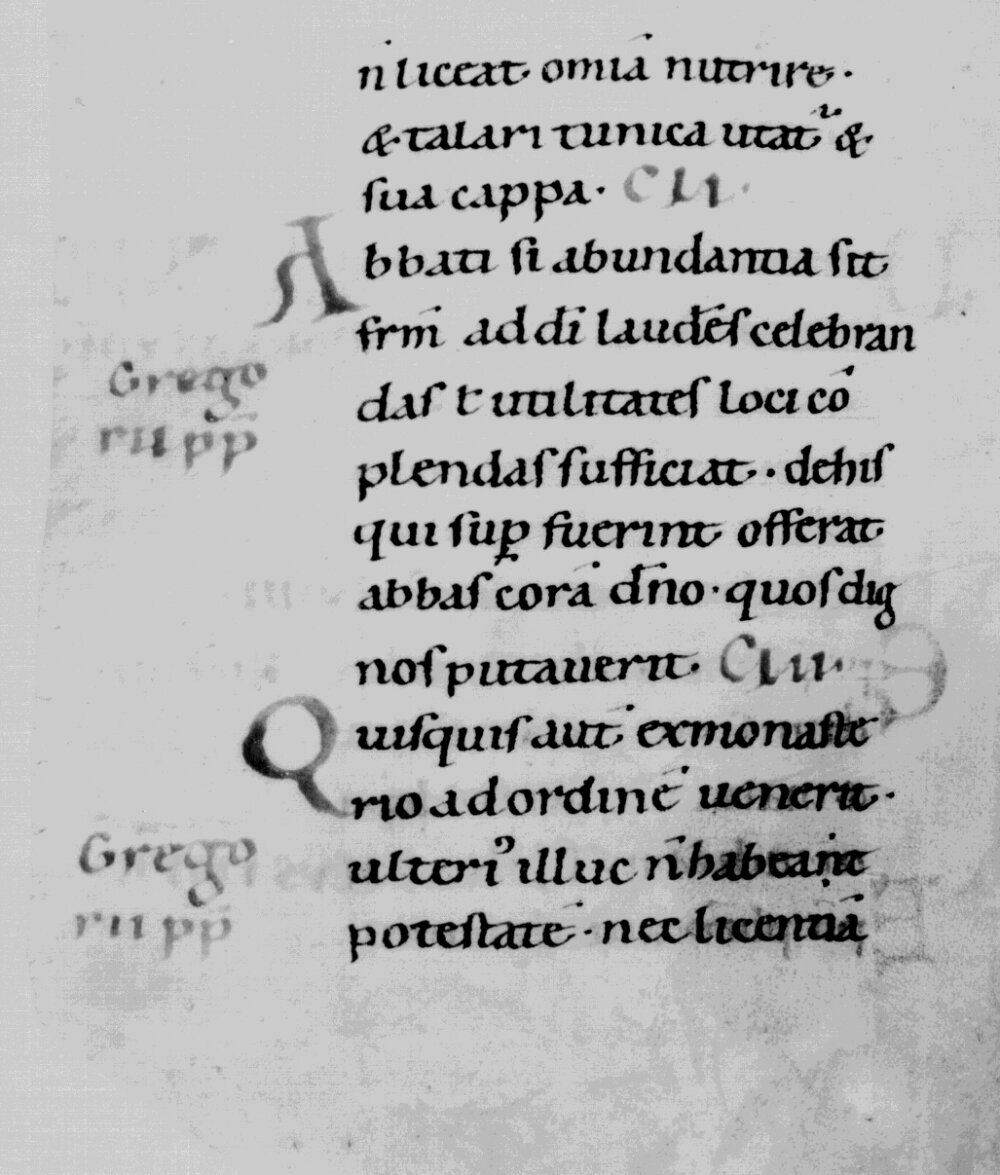 n̄ liceat omīa nutrire·
& talari tunica utat᷑ &
sua cappa· CLI·
Abbati si abundantia sit
frm̄ ad dī laudēs celebran
das ł utilitates loci cō
Grego
rii pp̄
plendas sufficiat·· dehis
qui suꝑ fuerint offerat
abbas corā dn̄o· quos dig
nos putauerit· CLII·
Quisquis aut̄ exmonaste
rio ad ordinē uenerit·
ulteriꝰ illuc n̄ habeant
Grego
rii pp̄
potestatē· nec licentiā